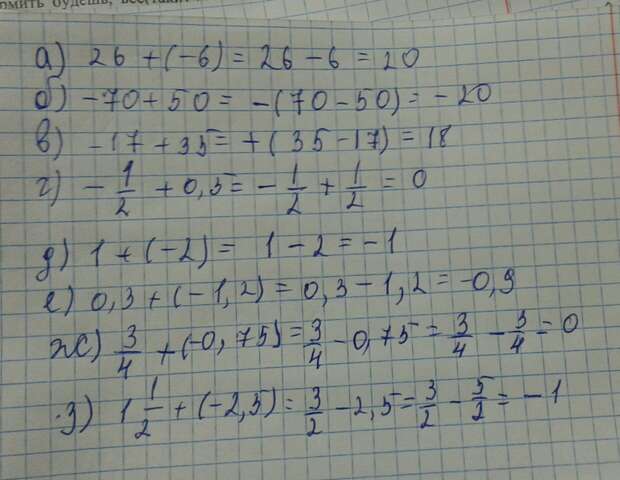 омить будешь, все
а) 26 + (-6) = 26 - 6 = 20
б) -70 + 50 = -(70 - 50) = -20
в) -17 + 35 = +(35 - 17) = 18
г) -1/2 + 0,5 = -1/2 + 1/2 = 0
д) 1 + (-2) = 1 - 2 = -1
е) 0,3 + (-1,2) = 0,3 - 1,2 = -0,9
ж) 3/4 + (-0,75) = 3/4 - 0,75 = 3/4 - 3/4 = 0
з) 1 1/2 + (-2,5) = 3/2 - 2,5 = 3/2 - 5/2 = -1